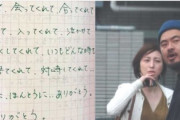 、会ってくれて、合ってくれて
て、入ってくれて、泣かせて
してくれて、いつもどんな時も
てくれて、対峙してくれて
に、ほんとうに…ありがとう。
りがとう。